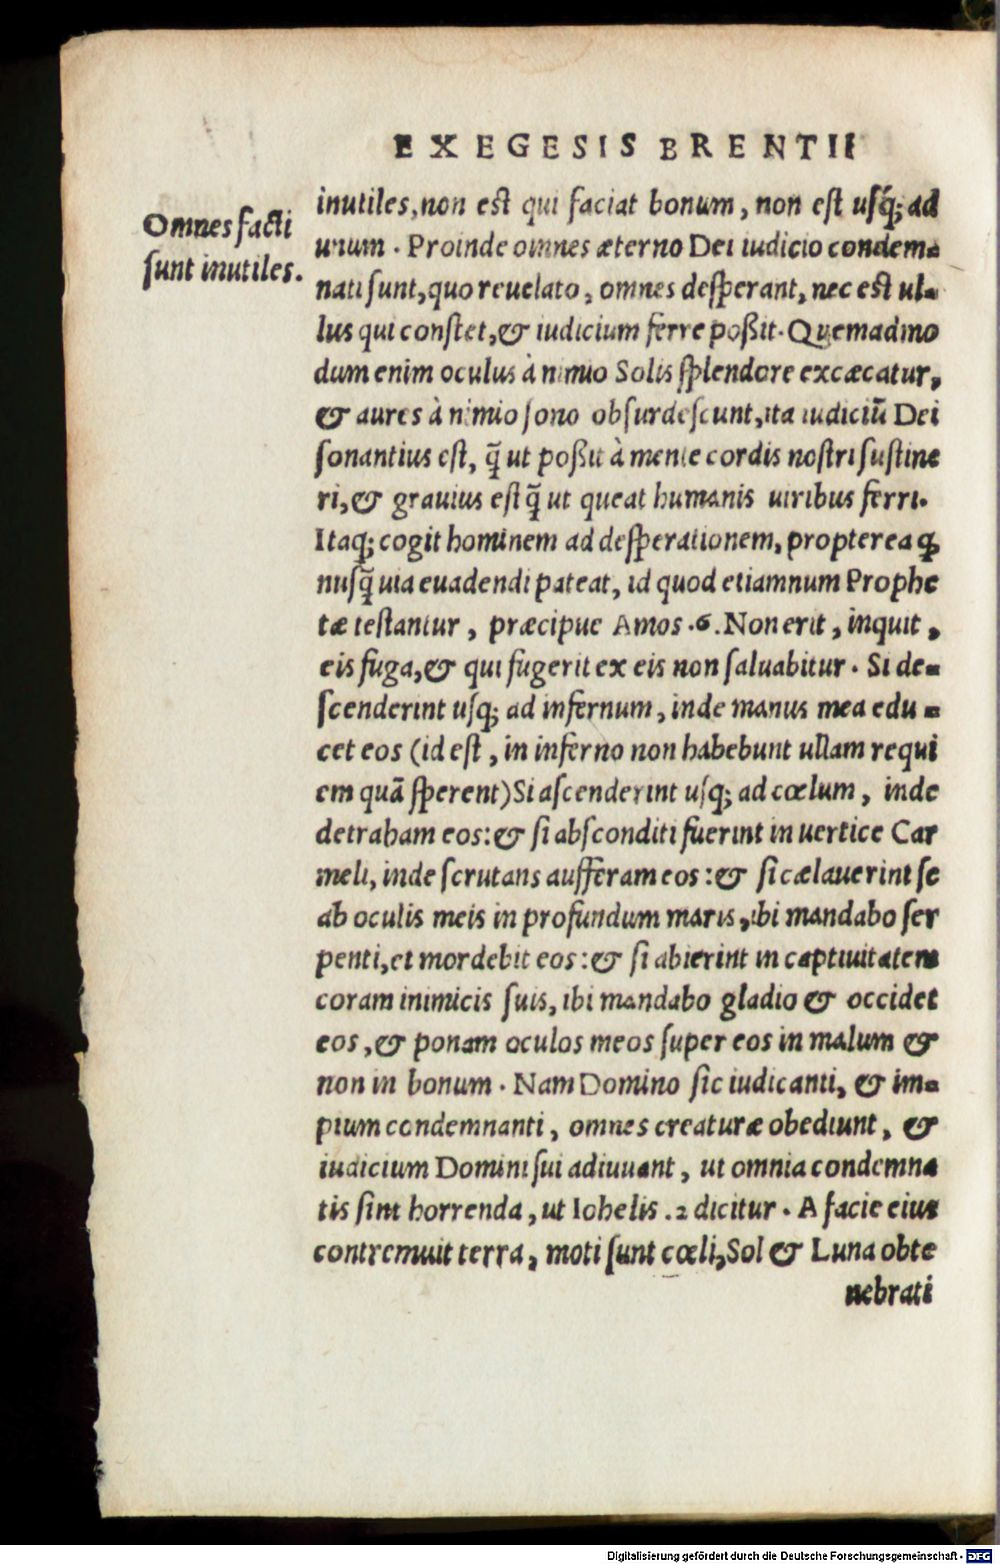 EXEGESIS BRENTII
Omnes facti
sunt inutiles.
inutiles, non est qui faciat bonum, non est usq́; ad
unum. Proinde omnes æterno Dei iudicio condem-
nati sunt, quo reuelato, omnes desperant, nec est ul-
lus qui constet, & iudicium ferre poßit. Quemadmo
dum enim oculus à nimio Solis splendore excæcatur,
& aures à nimio sono obsurdescunt, ita iudiciũ Dei
sonantius est, q̃ ut poßit à mente cordis nostri sustine
ri, & grauius est q̃ ut queat humanis uiribus ferri.
Itaq; cogit hominem ad desperationem, propterea ꝙ
nusq̃ uia euadendi pateat, id quod etiamnum Prophe
tæ testantur, præcipue Amos .6. Non erit, inquit,
eis fuga, & qui fugerit ex eis non saluabitur. Si de-
scenderint usq; ad infernum, inde manus mea edu-
cet eos (id est, in inferno non habebunt ullam requi
em quã sperent) Si ascenderint usq; ad cœlum, inde
detraham eos: & si absconditi fuerint in uertice Car
meli, inde scrutans aufferam eos: & si cælauerint se
ab oculis meis in profundum maris, ibi mandabo ser
penti, et mordebit eos: & si abierint in captiuitatem
coram inimicis suis, ibi mandabo gladio & occidet
eos, & ponam oculos meos super eos in malum &
non in bonum. Nam Domino sic iudicanti, & im-
pium condemnanti, omnes creaturæ obediunt, &
iudicium Domini sui adiuuant, ut omnia condemna
tis sint horrenda, ut Iohelis .2 dicitur. A facie eius
contremuit terra, moti sunt cœli, Sol & Luna obte
nebrati
Digitalisierung gefördert durch die Deutsche Forschungsgemeinschaft - DFG